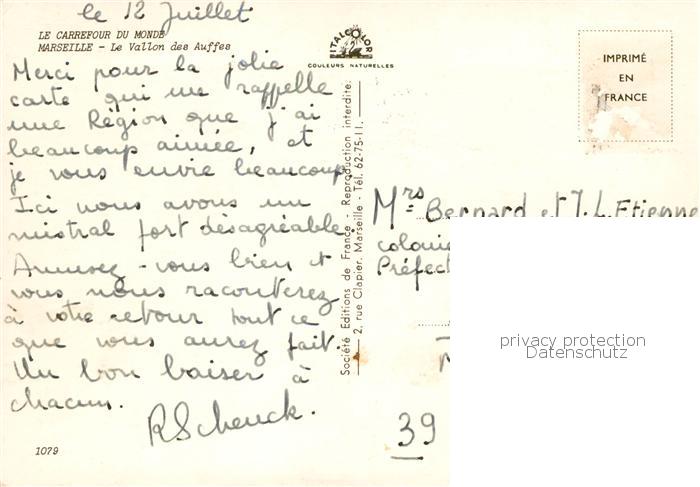 le 12 Juillet
LE CARREFOUR DU MONDE
MARSEILLE - Le Vallon des Auffes
Merci pour la jolie
carte qui me rappelle
une Région que j'ai
beaucoup aimée, et
je vous envie beaucoup
Ici nous avons un
mistral fort désagréable.
Amusez-vous bien et
vous nous raconterez
à votre retour tout ce
que vous aurez fait.
Un bon baiser à
chacun.
R Schenck.
1079
ITALCOLOR
COULEURS NATURELLES
Société Editions de France - Reproduction interdite
2, rue Clapier, Marseille - Tél. 62-75-11.
IMPRIMÉ
EN
FRANCE
Mrs Bernard et J.L. Etienne
colonie
Préfect
39
privacy protection
Datenschutz